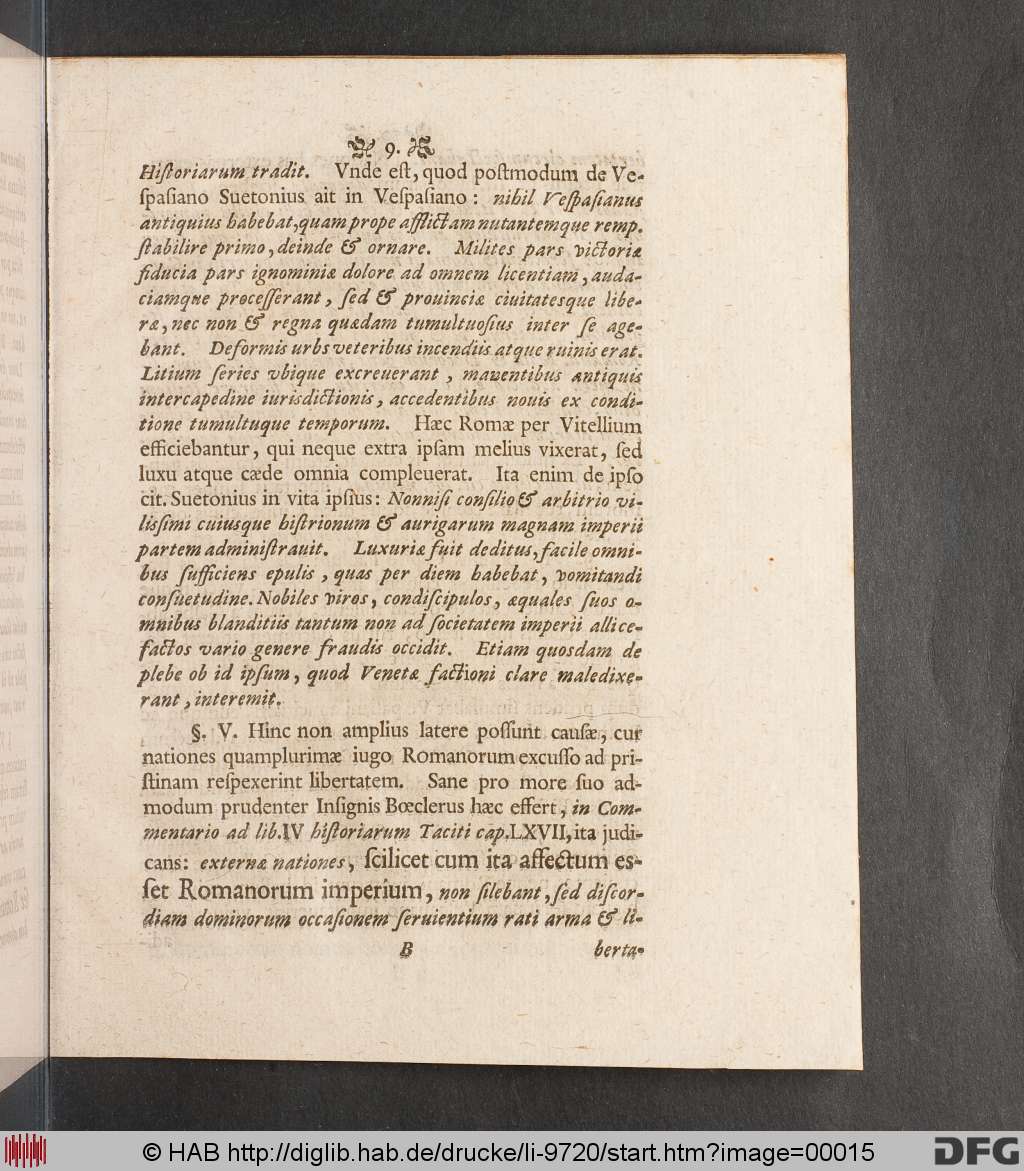 9.
Hiſtoriarum tradit. Vnde eſt, quod poſtmodum de Ve-
ſpaſiano Suetonius ait in Veſpaſiano: nihil Veſpaſianus
antiquius habebat, quam prope afflictam nutantemque remp.
ſtabilire primo, deinde & ornare. Milites pars victoriæ
fiducia pars ignominiæ dolore ad omnem licentiam, auda-
ciamque proceſſerant, ſed & prouinciæ ciuitatesque libe-
ræ, nec non & regna quædam tumultuoſius inter ſe age-
bant. Deformis urbs veteribus incendiis atque ruinis erat.
Litium ſeries vbique excreuerant, manentibus antiquis
intercapedine iurisdictionis, accedentibus nouis ex condi-
tione tumultuque temporum. Hæc Romæ per Vitellium
efficiebantur, qui neque extra ipſam melius vixerat, ſed
luxu atque cæde omnia compleuerat. Ita enim de ipſo
cit. Suetonius in vita ipſius: Nonniſi conſilio & arbitrio vi-
liſſimi cuiusque hiſtrionum & aurigarum magnam imperii
partem adminiſtrauit. Luxuriæ fuit deditus, facile omni-
bus ſufficiens epulis, quas per diem habebat, vomitandi
conſuetudine. Nobiles viros, condiſcipulos, æquales ſuos o-
mnibus blanditiis tantum non ad ſocietatem imperii allice-
factos vario genere fraudis occidit. Etiam quosdam de
plebe ob id ipſum, quod Venetæ factioni clare maledixe-
rant, interemit.
§. V. Hinc non amplius latere poſſunt cauſæ, cur
nationes quamplurimæ iugo Romanorum excuſſo ad pri-
ſtinam reſpexerint libertatem. Sane pro more ſuo ad-
modum prudenter Inſignis Bœclerus hæc effert, in Com-
mentario ad lib. IV hiſtoriarum Taciti cap. LXVII, ita judi-
cans: externæ nationes, ſcilicet cum ita affectum es-
ſet Romanorum imperium, non ſilebant, ſed diſcor-
diam dominorum occaſionem ſeruientium rati arma & li-
B berta-
© HAB http://diglib.hab.de/drucke/li-9720/start.htm?image=00015
DFG